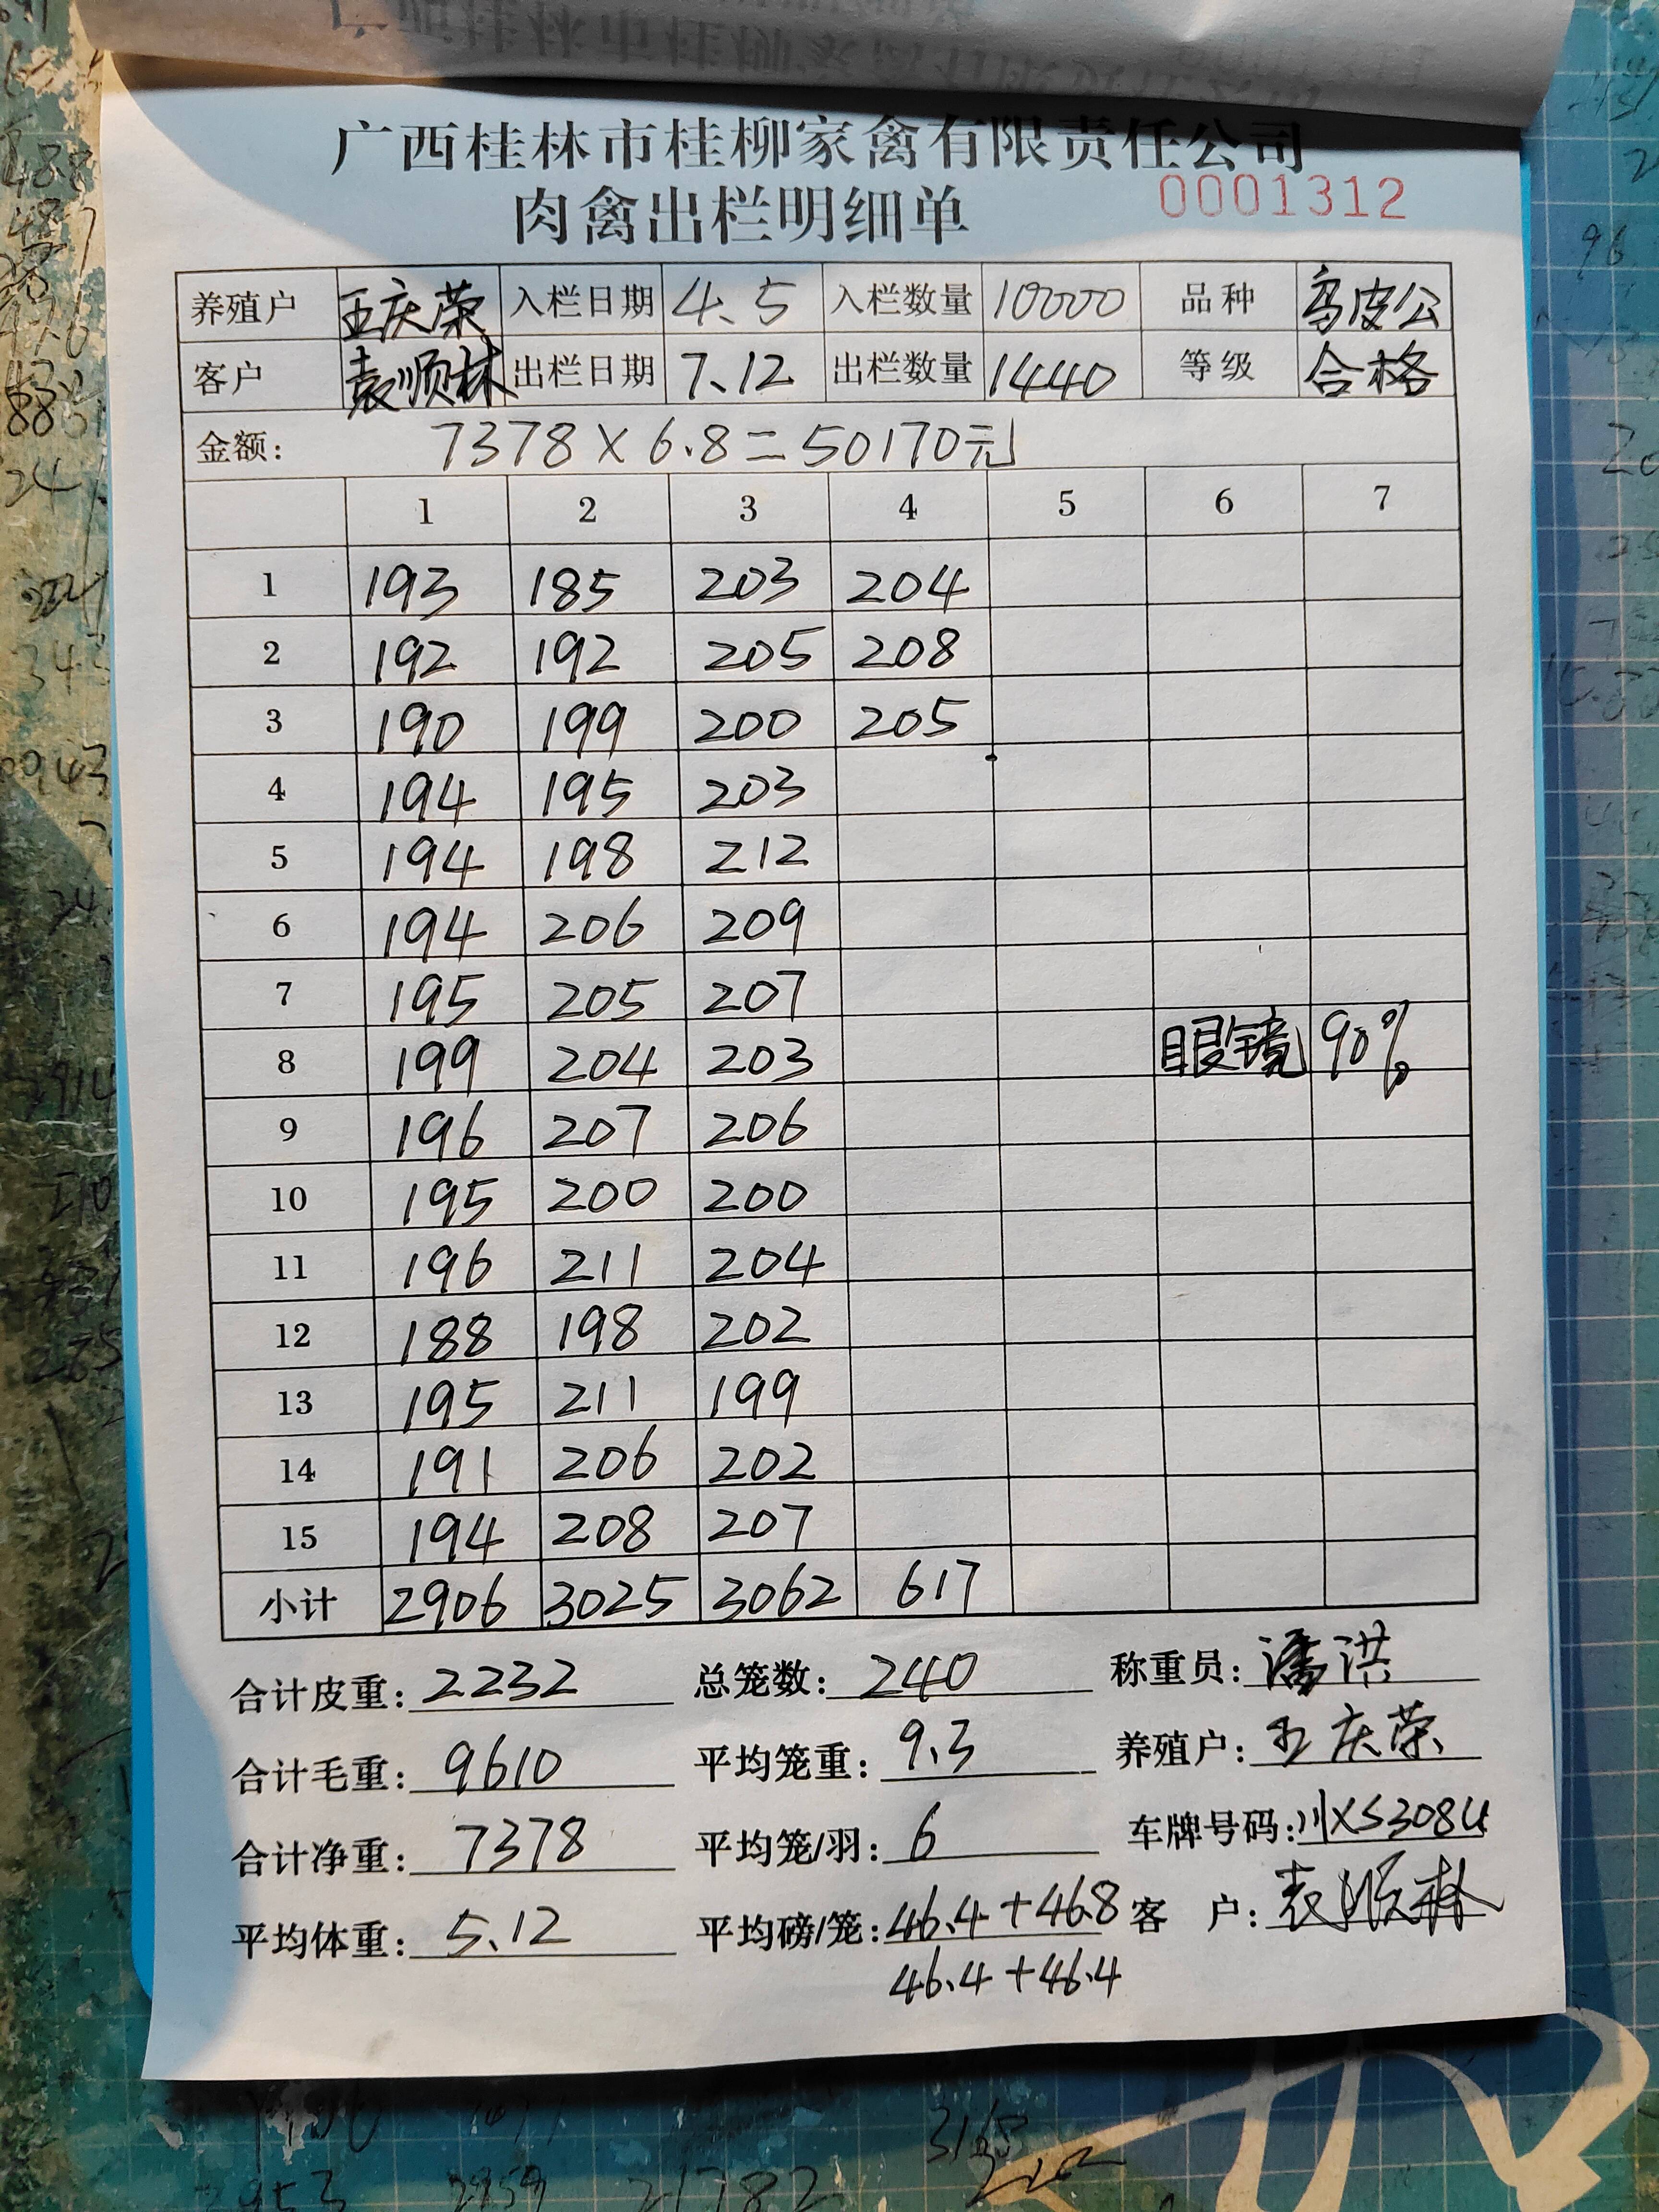 广西桂林市桂柳家禽有限责任公司
肉禽出栏明细单 0001312
养殖户 王庆荣 入栏日期 4.5 入栏数量 10000 品种 乌皮公
客户 袁顺林 出栏日期 7.12 出栏数量 1440 等级 合格
金额: 7378×6.8=50170元
1 2 3 4 5 6 7
1 193 185 203 204
2 192 192 205 208
3 190 199 200 205
4 194 195 203
5 194 198 212
6 194 206 209
7 195 205 207
8 199 204 203 眼镜 90%
9 196 207 206
10 195 200 200
11 196 211 204
12 188 198 202
13 195 211 199
14 191 206 202
15 194 208 207
小计 2906 3025 3062 617
合计皮重: 2232 总笼数: 240 称重员: 潘洪
合计毛重: 9610 平均笼重: 9.3 养殖户: 王庆荣
合计净重: 7378 平均笼/羽: 6 车牌号码: 川XS308U
平均体重: 5.12 平均磅/笼: 46.4+46.8 客户: 袁顺林
46.4+46.4